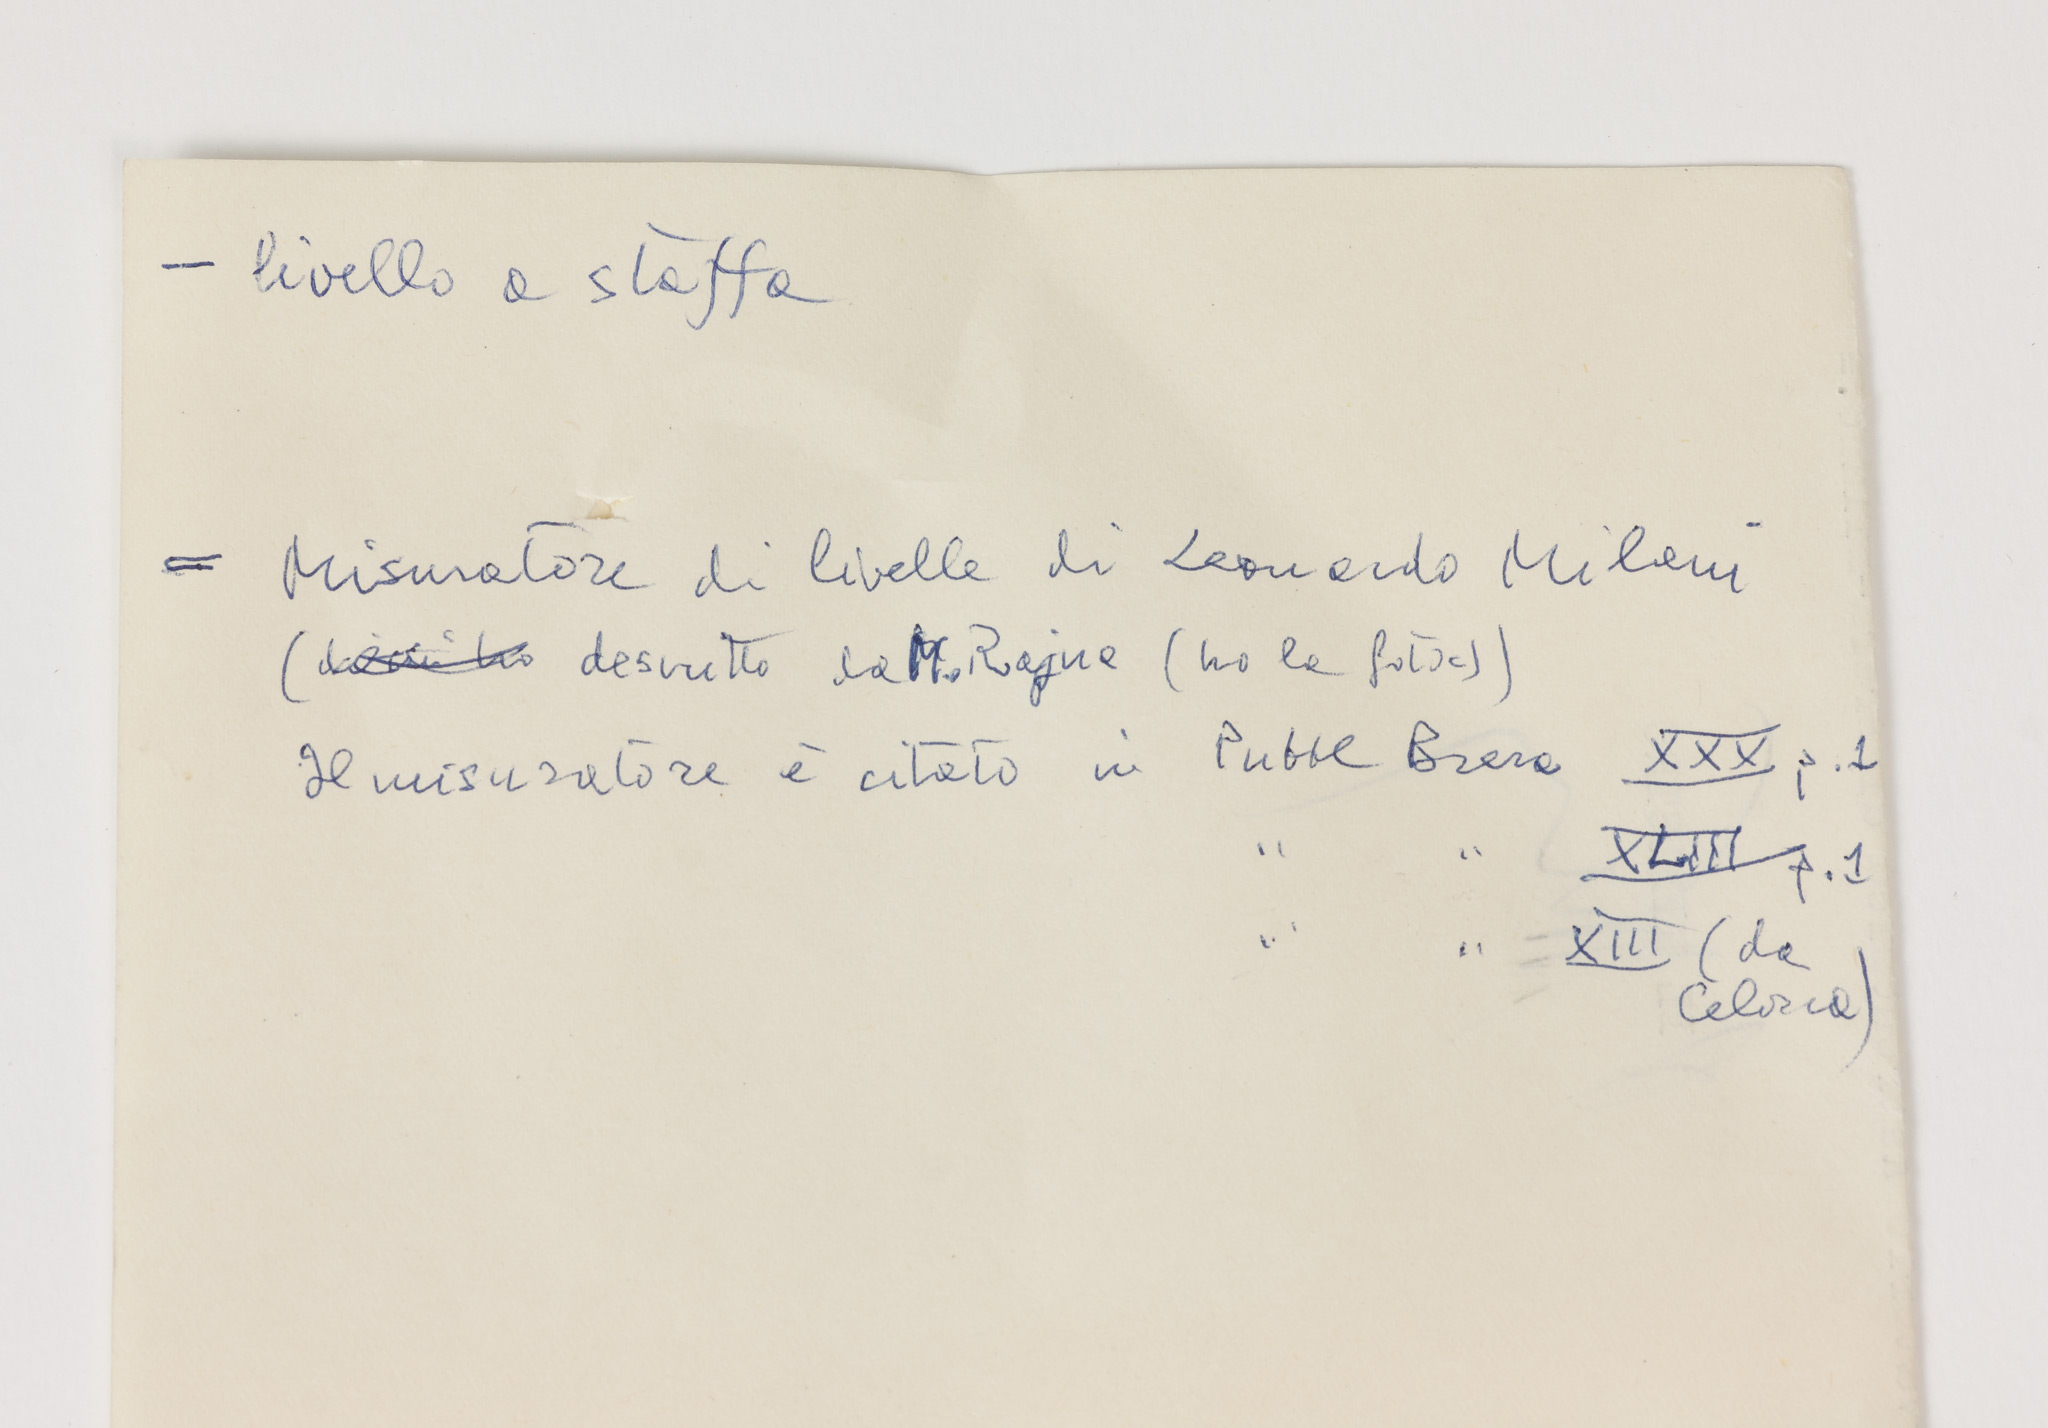 – livello a staffa
= Misuratore di livelle di Leonardo Milani
( descritto da M. Rajna (ho la fotoc))
Il misuratore è citato in Pubbl Brera XXX p.1
" " XLIII p.1
" " = XIII (da
Celoria)